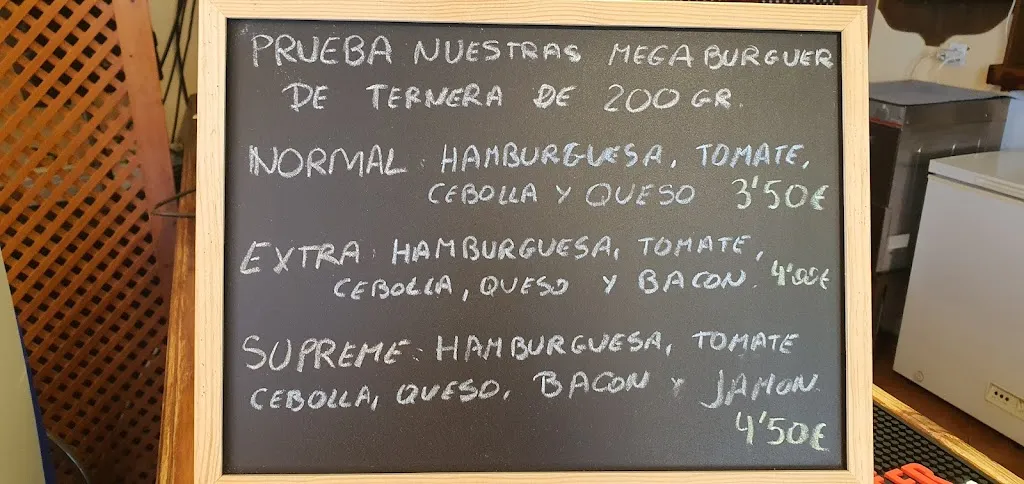 PRUEBA NUESTRAS MEGA BURGUER
DE TERNERA DE 200 GR.
NORMAL: HAMBURGUESA, TOMATE,
CEBOLLA Y QUESO 3'50€
EXTRA: HAMBURGUESA, TOMATE,
CEBOLLA, QUESO Y BACON. 4'00€
SUPREME: HAMBURGUESA, TOMATE
CEBOLLA, QUESO, BACON Y JAMON.
4'50€